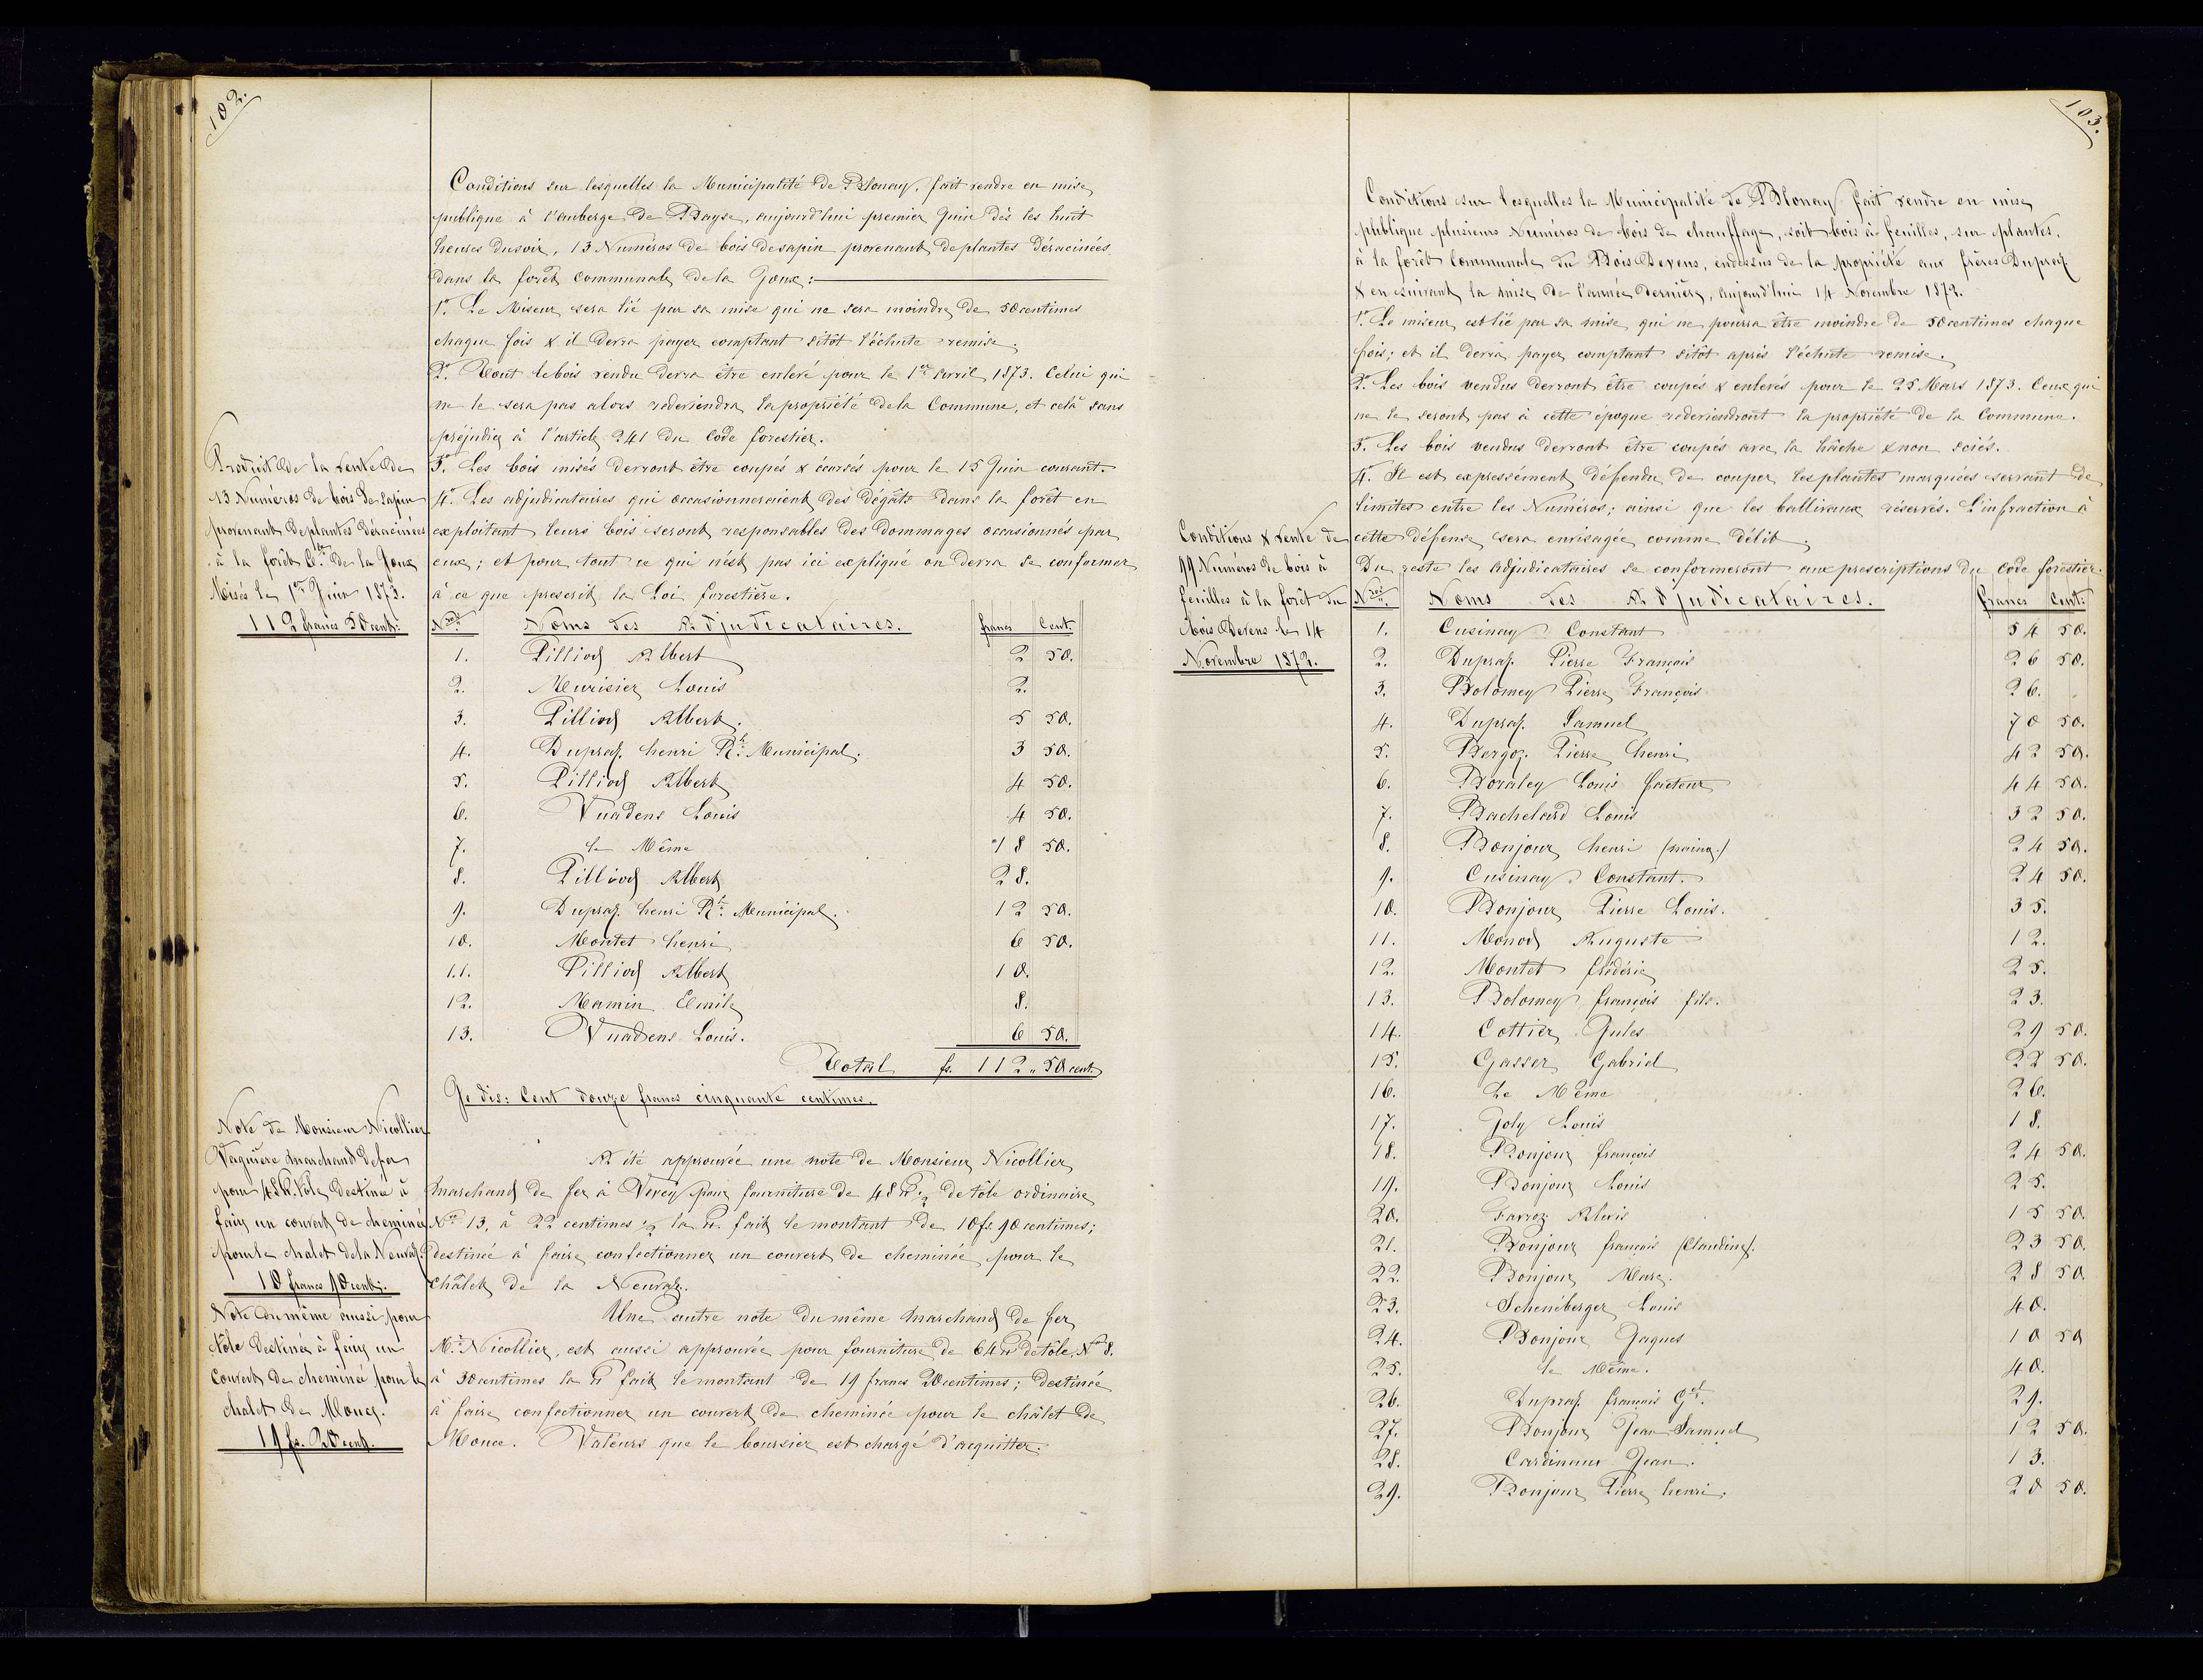 102.
Conditions sur lesquelles la Municipalité de Blonay, fait vendre en mise
publique à l'auberge de Bayse, aujourd'hui premier Juin dès les huit
heures du soir, 13 Numéros de bois de sapin provenant de plantes déracinées
dans la forêt communale de la Goux:
1º. Le Miseur sera lié par sa mise qui ne sera moindre de 50 centimes
chaque fois & il devra payer comptant sitôt l'échute remise.
2º. Tout le bois vendu devra être enlevé pour le 1er Avril 1873. Celui qui
ne le sera pas alors redeviendra la propriété de la Commune, et celà sans
préjudice à l'article 241 du Code forestier.
3º. Les bois misés devront être coupés & écorcés pour le 15 Juin courant.
4º. Les adjudicataires qui occasionneraient des dégâts dans la forêt en
exploitant leurs bois seront responsables des dommages occasionnés par
eux; et pour tout ce qui n'est pas ici expliqué on devra se conformer
à ce que prescrit la Loi forestière.
Produit de la vente de
13 Numéros de bois de sapin
provenant de plantes déracinées
à la forêt Cle de la Goux
Misés le 1er Juin 1873.
112 francs 50 cent:
Nros Noms des Adjudicataires. francs Cent.
1. Pilliod Albert 2 50.
2. Meurisier Louis 2.
3. Pilliod Albert. 5 50.
4. Dupraz henri Rh. Municipal. 3 50.
5. Pilliod Albert 4 50.
6. Vuadens Louis 4 50.
7. le Même 18 50.
8. Pilliod Albert 28.
9. Dupraz henri Rh. Municipal. 12 50.
10. Montet henri 6 50.
11. Pilliod Albert 10.
12. Mamin Emile 8.
13. Vuadens Louis. 6 50.
Total fs. 112 " 50 cent
Je dis: Cent douze francs cinquante centimes.
Note de Monsieur Nicollier
marchand de fer
pour 48 tt. tôle destinée à
faire un couvert de cheminée
pour le chalet de la Neuvaz.
10 francs 90 cent:
A été approuvée une note de Monsieur Nicollier
marchand de fer à Vevey pour fourniture de 48 tt. ½ de tôle ordinaire
No 13, à 22 centimes ½ la tt. fait le montant de 10 fs. 90 centimes;
destinée à faire confectionner un couvert de cheminée pour le
châlet de la Neuvaz.
Note du même aussi pour
tôle destinée à faire un
Couvert de cheminée pour le
chalet de Mouce.
19 fs. 20 cent.
Une autre note du même marchand de fer
Mr. Nicollier, est aussi approuvée pour fourniture de 64 tt de tôle, No 8.
à 30 centimes la tt fait le montant de 19 francs 20 centimes; destinée
à faire confectionner un couvert de cheminée pour le châlet de
Mouce. Valeurs que le boursier est chargé d'acquitter.
103.
Conditions sur lesquelles la Municipalité de Blonay fait vendre en mise
publique plusieurs Numéros de bois de chauffage, soit bois à feuilles, sur plantes,
à la forêt Communale du Bois Devens, endessus de la propriété aux frères Dupraz
& en suivant la mise de l'année dernière, aujourd'hui 14 Novembre 1872.
1º. Le miseur est lié par sa mise qui ne pourra être moindre de 50 centimes chaque
fois; et il devra payer comptant sitôt après l'échute remise.
2º. Les bois vendus devront être coupés & enlevés pour le 25 Mars 1873. Ceux qui
ne le seront pas à cette époque redeviendront la propriété de la Commune.
3º. Les bois vendus devront être coupés avec la hâche & non sciés.
4º. Il est expressément défendu de couper les plantes marquées servant de
limites entre les Numéros; ainsi que les balliveaux réservés. L'infraction à
cette défense sera envisagée comme délit.
Du reste les Adjudicataires se conformeront aux prescriptions du Code forestier.
Conditions & vente de
Numéros de bois à
feuilles à la forêt du
Bois Devens le 14
Novembre 1872.
Nros Noms des Adjudicataires. francs Cent:
1. Cusinay Constant 54 50.
2. Dupraz. Pierre François 26 50.
3. Bolomey Pierre François 26.
4. Dupraz. Samuel 70 50.
5. Bergoz. Pierre henri 42 50.
6. Bovaley Louis facteur 44 50.
7. Bachelard Louis 32 50.
8. Bonjour henri 24 50.
9. Cusinay Constant. 24 50.
10. Bonjour Pierre Louis. 35.
11. Monod Auguste 12.
12. Montet frédéric 25.
13. Bolomey françois fils. 23.
14. Cottier Jules 29 50.
15. Gasser Gabriel 22 50.
16. Le Même 26.
17. Joly Louis 18.
18. Bonjour françois 24 50.
19. Bonjour Louis 25.
20. Favroz Alexis 15 50.
21. Bonjour françois (Claudine). 23 50.
22. Bonjour Marc. 28 50.
23. Scheneberger Louis 40.
24. Bonjour Jaques 10 50
25. le Même. 40.
26. Dupraz françois Gel. 29.
27. Bonjour Jean Samuel 12 50.
28. Cardinaux Jean. 13.
29. Bonjour Pierre henri. 20 50.